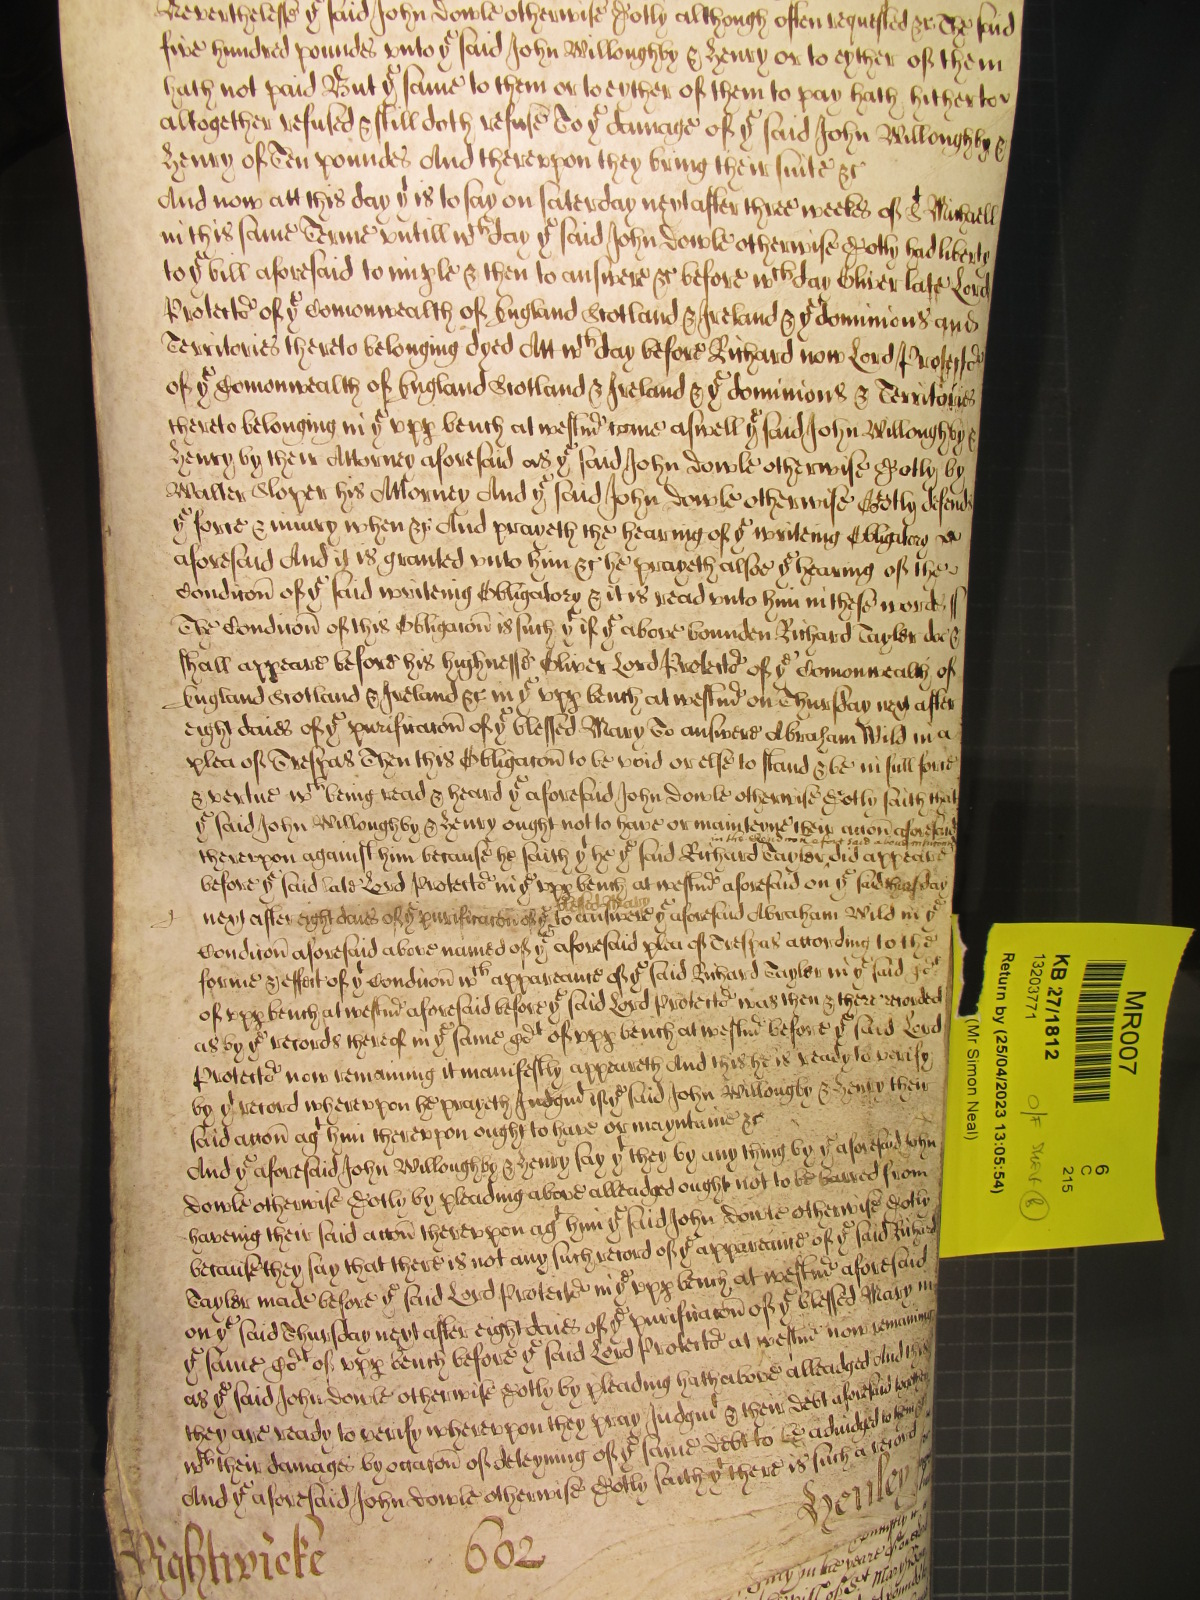 Nevertheless yͤ said John Dowle otherwise Dotly although often requested &c The said
five hundred poundes vnto yͤ said John Willoughby & Henry or to eyther of them
hath not paid But yͤ same to them or to eyther of them to pay hath hitherto
altogether refused & still doth refuse To yͤ damage of yͤ said John Willoughby &
Henry of Ten poundes And therevpon they bring their suite &c
And now att this day yͭ is to say on Saterday next after three weekes of Sͭ Michaell
in this same Terme vntill wͨʰ day yͤ said John Dowle otherwise Dotly had liberty
to yͤ bill aforesaid to imple & then to answere &c before wͨʰ day Oliver late Lord
Protectoͬ of yͤ Comonwealth of England Scotland & Ireland & yͤ dominions and
Territories thereto belonging dyed Att wͨʰ day before Richard now Lord Protectoͬ
of yͤ Comonwealth of England Scotland & Ireland & yͤ dominions & Territories
thereto belonging in yͤ vpp bench at westmͬ came aswell yͤ said John Willoughby &
Henry by their Attorney aforesaid as yͤ said John Dowle otherwise Dotly by
Walter Sloper his Attorney And yͤ said John Dowle otherwise Dotly defends
yͤ force & iniury when &c And prayeth the hearing of yͤ writeing Obligatory
aforesaid And it is granted vnto him &c he prayeth alsoe yͤ hearing of the
Condicōn of yͤ said writeing Obligatory & it is read vnto him in these words //
The Condicōn of this Obligacōn is such yͭ if yͤ above bounden Richard Tayler doe &
shall appeare before his highnesse Oliver Lord Protectoͬ of yͤ Comonwealth of
England Scotland & Ireland &c in yͤ vpp bench at westmͬ on Thursday next after
eight daies of yͤ purificacōn of yͤ blessed Mary To answere Abraham Wild in a
plea of Trespas Then this Obligacōn to be void or else to stand & be in full force
& vertue wͨʰ being read & heard yͤ aforesaid John Dowle otherwise Dotly saith that
yͤ said John Willoughby & Henry ought not to have or mainteyne their accōn aforesaid
therevpon against him because he saith yͭ he yͤ said Richard Tayler did appeare
before yͤ said late Lord Protectoͬ in yͤ vpp bench at westmͬ aforesaid on yͤ said thursday
blessed Mary
next after eight daies of yͤ purificacōn of yͤ to answere yͤ aforesaid Abraham Wild in yͤ
Condicōn aforesaid above named of yͤ aforesaid plea of Trespas according to the
forme & effect of yͤ Condicōn wͨʰ appearance of yͤ said Richard Tayler in yͤ said Coͬt
of vpp bench at westmͬ aforesaid before yͤ said Lord Protectoͬ was then & there recorded
as by yͤ records thereof in yͤ same Coͬt of vpp bench at westmͬ before yͤ said Lord
Protectoͬ now remaining it manifestly appeareth And this he is ready to verify
by yͤ record wherevpon he prayeth Judgmͭ if yͤ said John Willougby & Henry their
said accōn agͭ him therevpon ought to have or mayntaine &c
And yͤ aforesaid John Willoughby & Henry say yͭ they by any thing by yͤ aforesaid John
Dowle otherwise Dotly by pleading above alleadged ought not to be barred from
haveing their said accōn therevpon agͭ him yͤ said John Dowle otherwise Dotly
because they say that there is not any such record of yͤ appearance of yͤ said Richard
Tayler made before yͤ said Lord Protectoͬ in yͤ vpp bench at westmͬ aforesaid
on yͤ said Thursday next after eight daies of yͤ purificacōn of yͤ blessed Mary in
yͤ same Coͬt of vpp bench before yͤ said Lord Protectoͬ at westmͬ now remaining
as yͤ said John Dowle otherwise Dotly by pleading hath above alleadged And this
they are ready to verify wherevpon they pray Judgmͭ & their debt aforesaid together
wͨʰ their damages by occacōn of deteyning of yͤ same debt to be adiudged to them
And yͤ aforesaid John Dowle otherwise Dotly saith yͭ there is such a record
Henley
Rightwicke 602
MR007
6
C
215
KB 27/1812
13203771
Return by (25/04/2023 13:05:54)
(Mr Simon Neal)